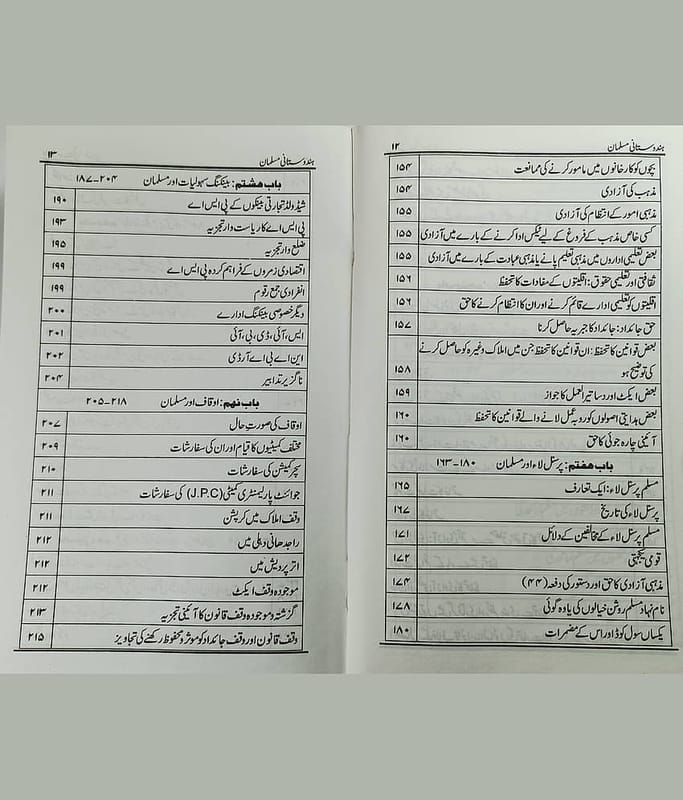 ہندوستانی مسلمان ۱۲
بچوں کو کارخانوں میں مامور کرنے کی ممانعت ۱۵۴
مذہب کی آزادی ۱۵۴
مذہبی امور کے انتظام کی آزادی ۱۵۵
کسی خاص مذہب کے فروغ کے لیے ٹیکس ادا کرنے کے بارے میں آزادی ۱۵۵
بعض تعلیمی اداروں میں مذہبی تعلیم پانے یا مذہبی عبادت کے بارے میں آزادی ۱۵۵
ثقافتی اور تعلیمی حقوق: اقلیتوں کے مفادات کا تحفظ ۱۵۶
اقلیتوں کو تعلیمی ادارے قائم کرنے اور ان کا انتظام کرنے کا حق ۱۵۶
حق جائداد: جائداد کا جبریہ حاصل کرنا ۱۵۷
بعض قوانین کا تحفظ: ان قوانین کا تحفظ جن میں املاک وغیرہ کو حاصل کرنے
کی توضیح ہو ۱۵۸
بعض ایکٹ اور دساتیر العمل کا جواز ۱۵۹
بعض ہدایتی اصولوں کو روبہ عمل لانے والے قوانین کا تحفظ ۱۶۰
آئینی چارہ جوئی کا حق ۱۶۰
باب ہفتم: پرسنل لاء اور مسلمان ۱۸۰-۱۶۳
مسلم پرسنل لاء: ایک تعارف ۱۶۵
پرسنل لاء کی تاریخ ۱۶۷
مسلم پرسنل لاء کے مخالفین کے دلائل ۱۷۱
قومی یکجہتی ۱۷۲
مذہبی آزادی کا حق اور دستور کی دفعہ (۴۴) ۱۷۴
نام نہاد مسلم روشن خیالوں کی یاوہ گوئی ۱۷۸
یکساں سول کوڈ اور اس کے مضمرات ۱۸۰
ہندوستانی مسلمان ۱۳
باب ہشتم: بینکنگ سہولیات اور مسلمان ۲۰۴-۱۸۷
شیڈولڈ تجارتی بینکوں کے پی ایس اے ۱۹۰
پی ایس اے کا ریاست وار تجزیہ ۱۹۳
ضلع وار تجزیہ ۱۹۵
اقتصادی زمروں کے فراہم کردہ پی ایس اے ۱۹۹
انفرادی جمع رقوم ۱۹۹
دیگر خصوصی بینکنگ ادارے ۲۰۰
ایس، آئی، ڈی، بی، آئی ۲۰۱
این اے بی اے آر ڈی ۲۰۲
ناگزیر تدابیر ۲۰۴
باب نہم: اوقاف اور مسلمان ۲۱۸-۲۰۵
اوقاف کی صورتِ حال ۲۰۷
مختلف کمیٹیوں کا قیام اور ان کی سفارشات ۲۰۹
سچر کمیشن کی سفارشات ۲۱۰
جوائنٹ پارلیمنٹری کمیٹی (J.P.C) کی سفارشات ۲۱۱
وقف املاک میں کرپشن ۲۱۱
راجدھانی دہلی میں ۲۱۲
اتر پردیش میں ۲۱۲
موجودہ وقف ایکٹ ۲۱۲
گزشتہ و موجودہ وقف قانون کا آئینی تجزیہ ۲۱۳
وقف قانون اور وقف جائداد کو موثر و محفوظ رکھنے کی تجاویز ۲۱۵